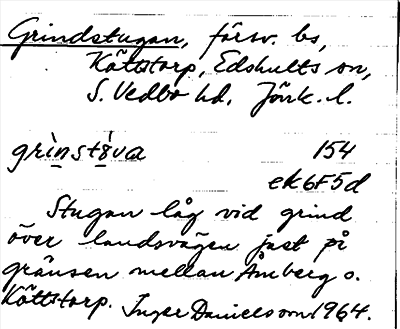 Grindstugan, försv. bs,
Kättstorp, Edshults sn,
S. Vedbo hd. Jönk. l.
grìnstùva 154
ek 6F5d
Stugan låg vid grind
över landsvägen just på
gränsen mellan Åmberg o.
Kättstorp. Inger Danielsson 1964.